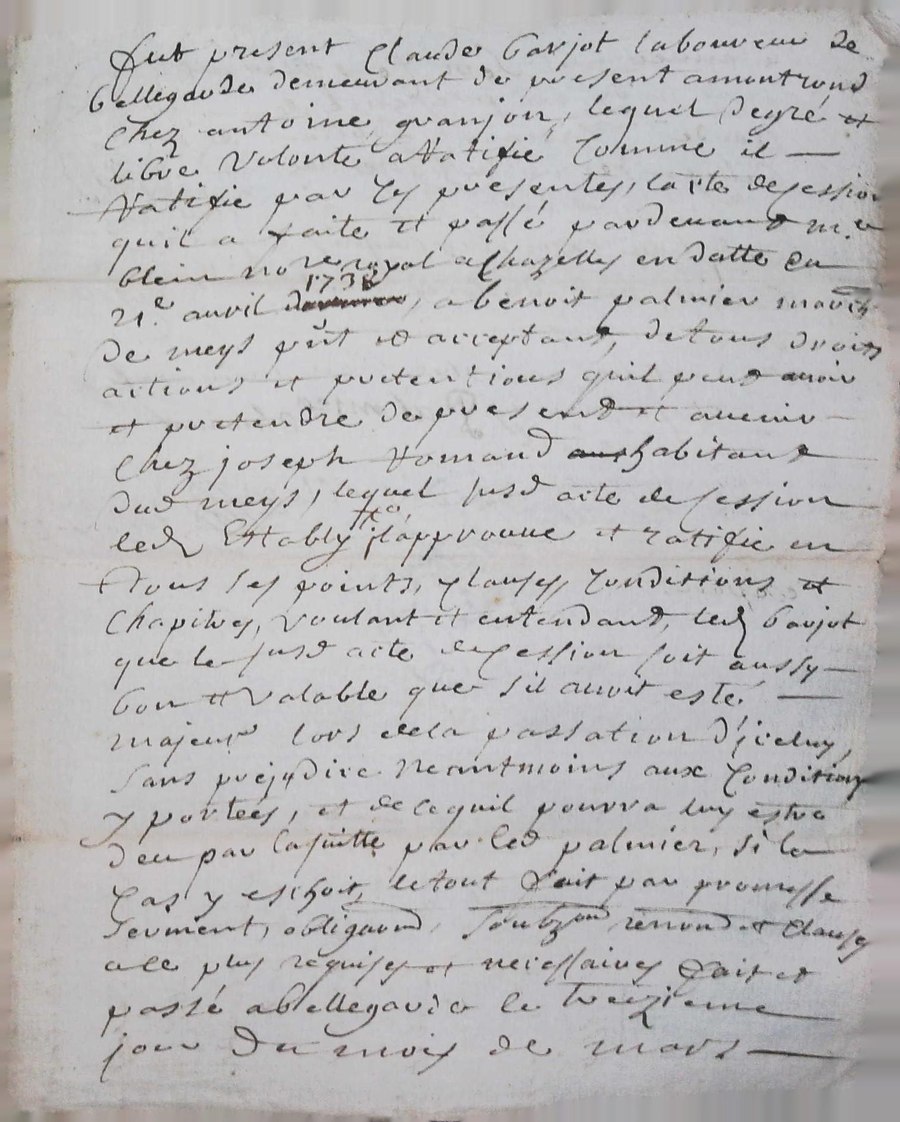 fut present Claude barjot laboureur de
bellegarde demeurant de present amontrond
chez antoine granjon, lequel degré et
libre volonté a Ratifié Comme il
Ratifie par Ces presentes, lacte de cession
quil a faite et passé pardevant m.e
blein no.re royal a Chazelles en datte du
21.e avril 1738, a benoit palmier march
de meys pñt et acceptant, de tous droits
actions et pretentions quil peut avoir
et pretendre de present et avenir
Chez joseph Romand habitant
dud meys, lequel susd acte de cession
led Estably il approuve et ratifie en
tous ses points, clauses, Conditions et
Chapitres, voulant et entendant, led barjot
que le susd acte de cession soit aussy
bon et valable que sil avoit esté
majeur lors de la passation d'jceluy,
sans prejudice neantmoins aux Conditions
y portées, et de ce quil pourra luy estre
deu par la suitte par led palmier, si le
Cas y eschoit, le tout fait par promesse
serment, obligaõn, renonõn et Clauses
a ce plus requises et necessaires fait et
passé a bellegarde le treizieme
jour du mois de mars